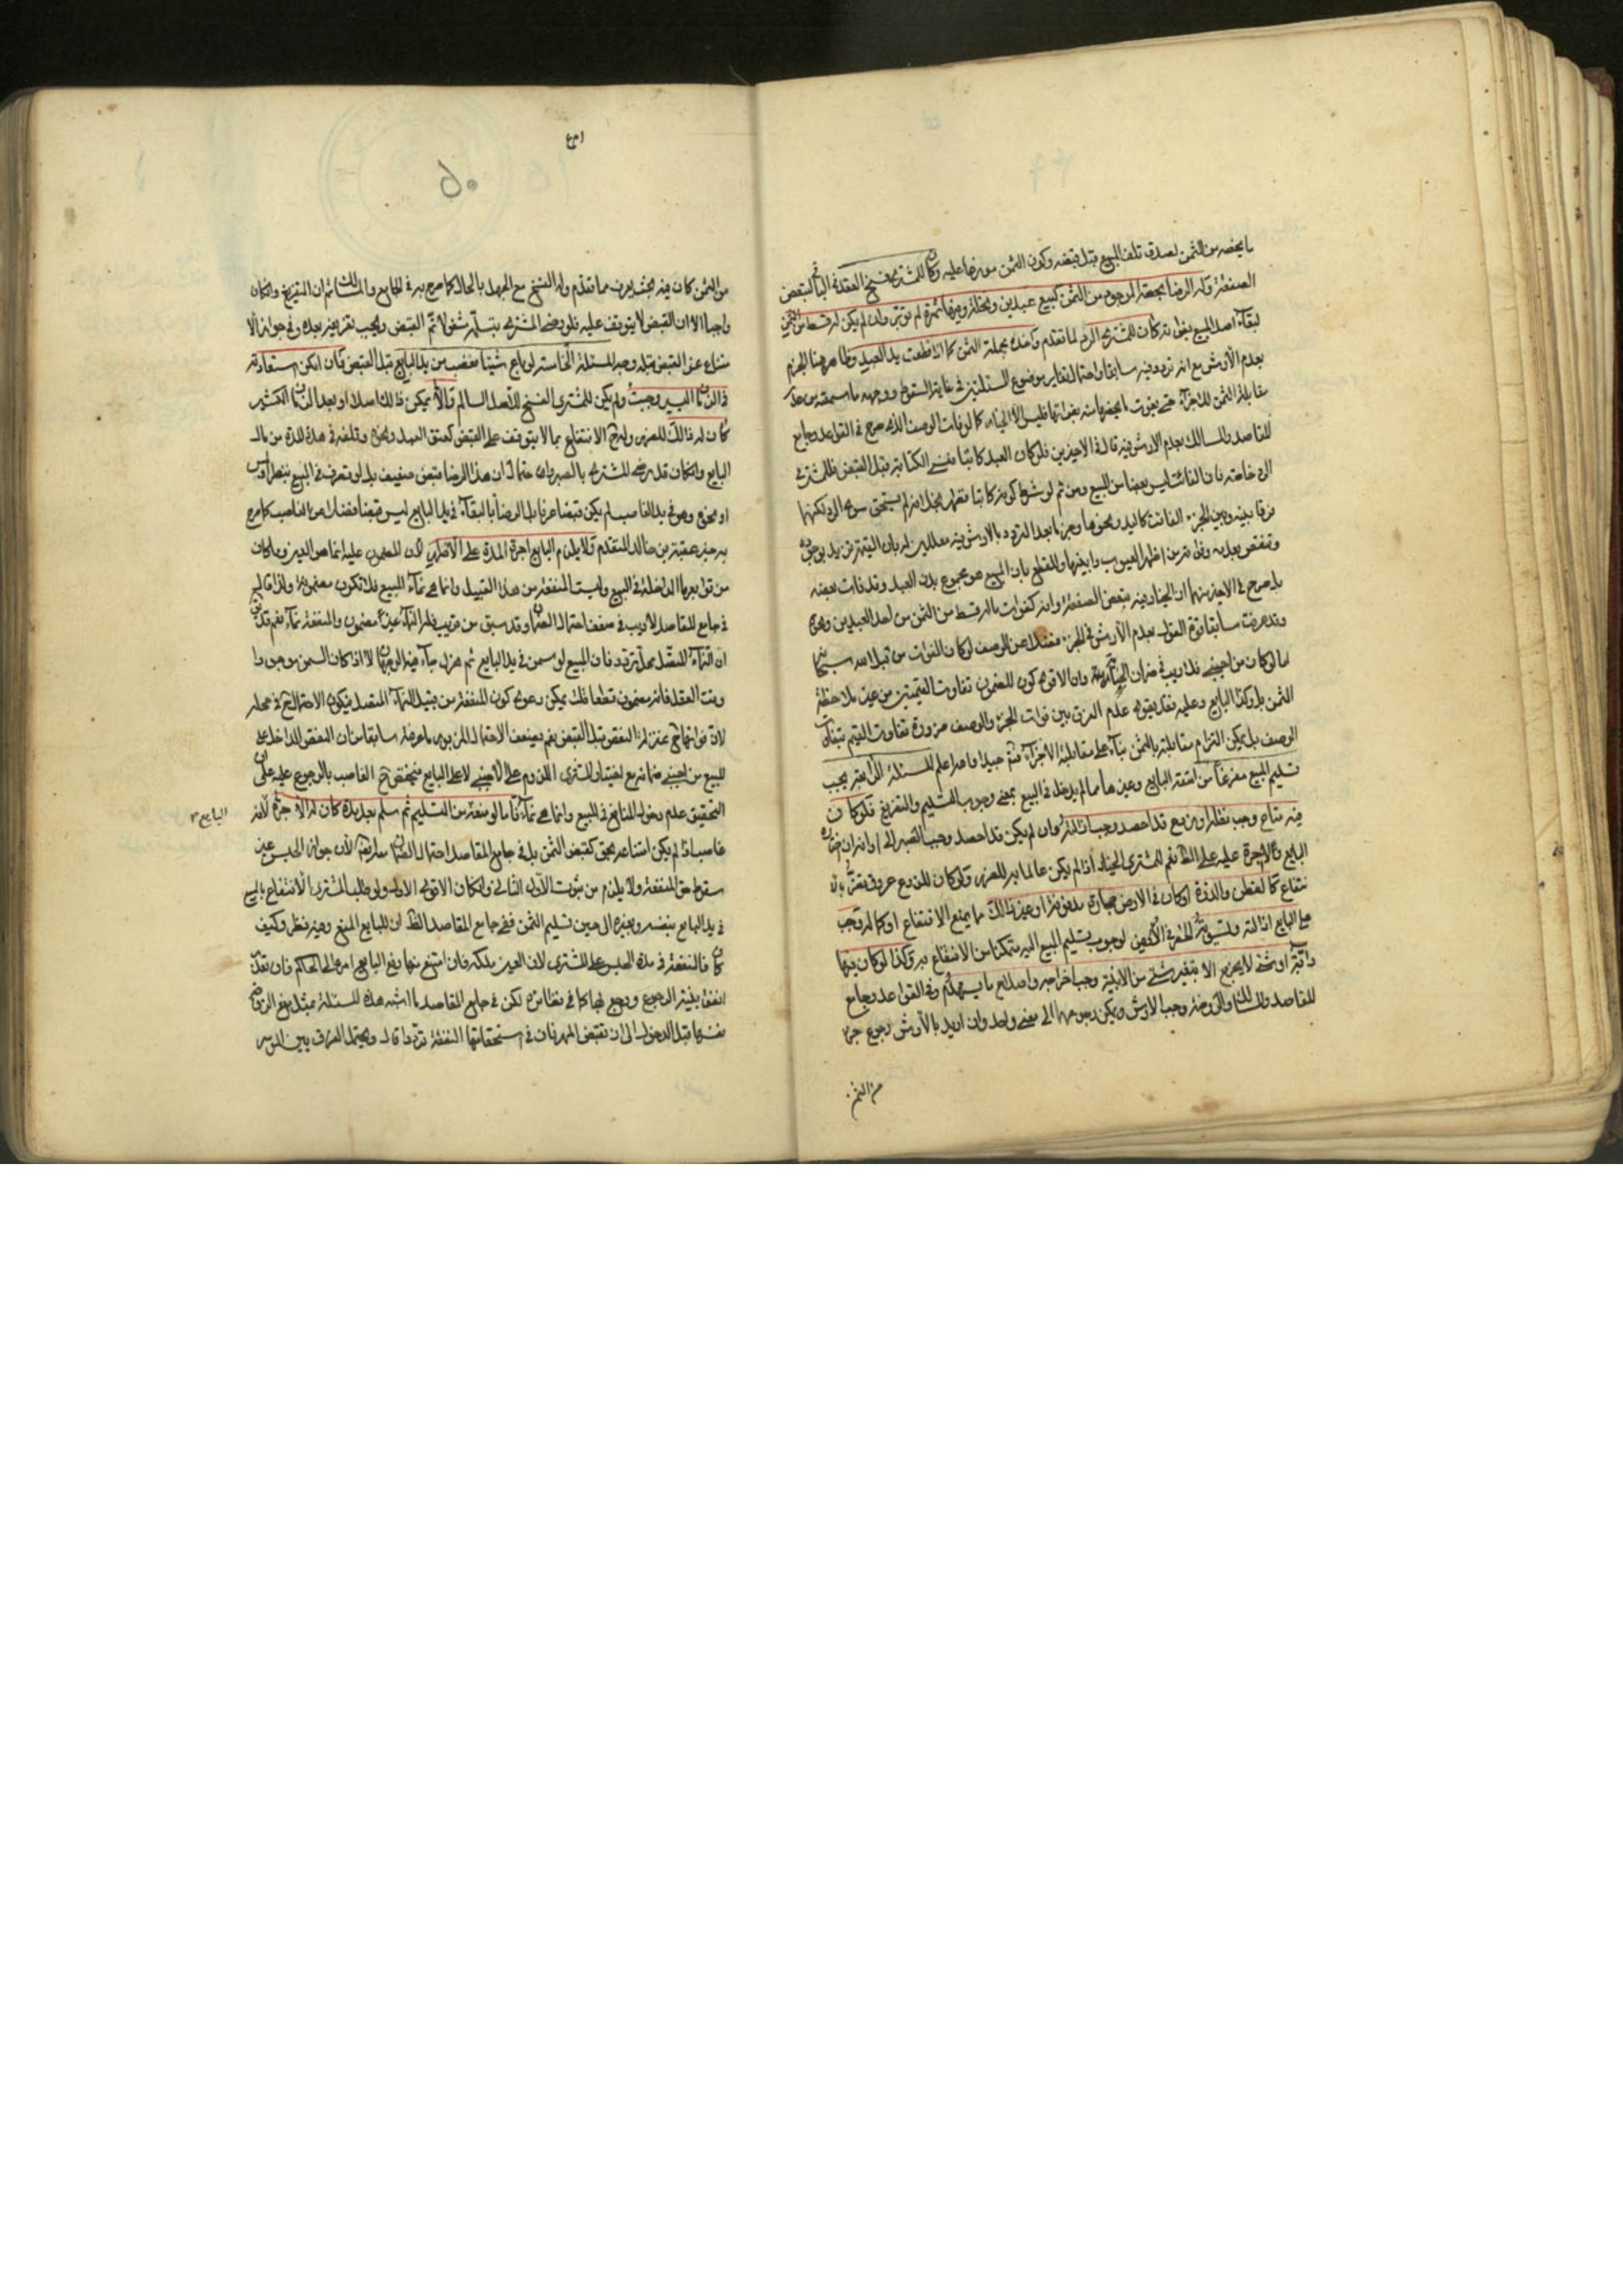 ما يخصه من الثمن لصدق تلف المبيع قبل قبضه وكون الثمن موزعا عليه وكان للمشتري فسخ العقد في الباقي لتبعض
الصفقة وله الرضا بحصة الموجود من الثمن كبيع عبدين ونخلة وفيها ثمرة لم تؤبر وان لم يكن له قسط من الثمن
كان للمشتري الرد لما تقدم واخذه بجملة الثمن كما لو قطعت يد العبد وظاهرهم هنا الجزم
بعدم الأرش مع انه تردد فيه سابقا واحتمال تغاير موضوع المسئلتين في غاية السقوط ووجهه ما سمعته من عدم
مقابلة الثمن للاجزاء حتى يفوت ما يخصها منه بفواتها فليس الا الخيار كما لو فات الوصف الذي صرح في القواعد وجامع
المقاصد والمسالك بعدم الارش فيه قال في الاخيرين فلو كان العبد كاتبا فنسي الكتابة قبل القبض فللمشتري
الرد خاصة فان الفائت ليس بعضا من المبيع ومن ثم لو شرط كونه كاتبا فظهر بخلافه لم يستحق سوى الرد لكنهما
فرقا بينه وبين الجزء الفائت كاليد ونحوها وجزما بعد التردد بالارش فيه معللين له بان القيمة تزيد بوجوده
وتنقص بعدمه وفواته من اظهر العيوب وابينها وللقطع بان المبيع هو مجموع بدن العبد وقد فات بعضه
بل صرح في الاخير منهما ان الخيار فيه بتبعض الصفقة وانه كفوات ما له قسط من الثمن من احد العبدين
وقد عرفت سابقا قوة القول بعدم الأرش في الجزء فضلا عن الوصف لو كان الفوات من قبل الله سبحانه
اما لو كان من اجنبي فلا ريب في ضمان الجناية وان الاقوى كون المضمون تفاوت القيمتين من غير ملاحظة
الثمن بل وكذا البايع وعليه فقد يقوى عدم الفرق بين فوات الجزء والوصف ضرورة تفاوت القيم بتفاوت
الوصف بل يمكن التزام مقابلته بالثمن بناء على مقابلة الاجزاء فتأمل جيدا والله اعلم المسئلة الرابعة يجب
تسليم المبيع مفرغا من امتعة البايع وغيرها مما لم يدخل في المبيع بمعنى وجوب التسليم والتفريغ فلو كان
فيه متاع وجب نقله او زرع قد احصد وجب ازالته وان لم يكن قد احصد وجب الصبر الى اوانه ان اختاره
البايع ولا اجرة عليه على الظاهر نعم للمشتري الخيار اذا لم يكن عالما به للضرر ولو كان للزرع عروق تضر بالا
نتفاع كالقطن والذرة او كان في الارض حجارة مدفونة او غير ذلك مما يمنع الانتفاع او كماله وجب
على البايع ازالته وتسوية الحفر في الارض لوجوب تسليم المبيع اليه متمكنا من الانتفاع به وكذا لو كان فيها
دابة او شيء لا يخرج الا بتغير شيء من الابنية وجب اخراجه واصلاح ما يستهدم وفي القواعد وجامع
المقاصد والمسالك والروضة وجب الارش ويمكن رجوعهما الى معنى واحد وان اريد بالأرش رجوع جزء
من الثمن
امع
٥٠
من الثمن كان فيه بحث يعرف مما تقدم وله الفسخ مع الجهل بالحال كما صرح به في الجامع والمسالك ثم ان التفريغ وان كان
واجبا الا ان القبض لا يتوقف عليه فلو رضي المشتري بتسلمه مشغولا تم القبض ويجب تفريغه بعده وفي جواز الا
متناع عن القبض قبله وجه المسئلة الخامسة لو باع شيئا فغصب من يد البايع قبل القبض فان امكن استعادته
في الزمان اليسير وجبت ولم يكن للمشتري الفسخ للاصل السالم والا يمكن ذلك اصلا او بعد الزمان الكثير
كان له ذلك للضرر وله الانتفاع بما لا يتوقف على القبض كعتق العبد ونحوه وتلفه في هذه المدة من مال
البايع وان كان قد رضي المشتري بالصبر واحتمال ان هذا الرضا قبض ضعيف بل لو تصرف في المبيع
او نحوه وهو في يد الغاصب لم يكن قبضا عرفا بل الرضا بالبقاء في يد البايع ليس قبضا فضلا عن الغاصب كما صرح
به ولا يلزم البايع اجرة المدة على الاظهر لان المضمون عليه انما هو العين وما كان
من توابعها الداخلة في المبيع وليست المنفعة من هذا القبيل وانما هي نماء المبيع فلا تكون مضمونة ولذا قال
في جامع المقاصد لا ريب في ضعف احتمال الضمان وقد سبق من قريب ان النماء غير مضمون والمنفعة نماء نعم قد
ان النماء المتصل محل تردد فان المبيع لو سمن في يد البايع ثم هزل الا اذا كان السمن موجودا
وقت العقد فانه مضمون قطعا فلا يمكن دعوى كون المنفعة من قبيل النماء المتصل فيكون الاحتمال في محله
لان فواتها بمنزلة النقص قبل القبض نعم يضعف الاحتمال المزبور ما عرفته سابقا من ان النقص الداخل على
المبيع من اجنبي ضمانه مع اختيار المشتري اللزوم على الاجنبي لا على البايع فيختص الغاصب بالرجوع عليه على ان
التحقيق عدم دخول المنافع في المبيع وانما هي نماء فاما لو منعه من التسليم ثم سلم بعد مدة كان له الاجرة لانه
البايع
غاصب اذا لم يكن امتناعه بحق كقبض الثمن بل في جامع المقاصد احتمال الضمان لان جواز الحبس غير
سقوط حق المنفعة ولا يلزم من ثبوت الاول الثاني وان كان الاقوى الاول ولو طلب المشتري الانتفاع بالمبيع
في يد البايع بنفسه وبغيره الى حين تسليم الثمن ففي جامع المقاصد الظاهر ان للبايع المنع وفيه نظر وكيف
كان فالنفقة في مدة الحبس على المشتري لان العين ملكه فان امتنع منها رفع البايع امره الى الحاكم فان تعذر
انفق بنية الرجوع ورجع بها كما في نظائره لكن في جامع المقاصد ما اشبه هذه المسئلة بمثل منع الزوجة
نفسها قبل الدخول الى ان تقبض المهر فان في استحقاقها النفقة ترددا قال ويحتمل الفرق بين الموسر